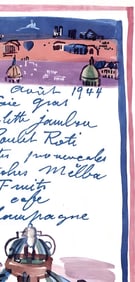 août 1944
oie gras
lett jambon
oulet Roti
ts provencales
ches Melba
Fruits
cafe
hampagne